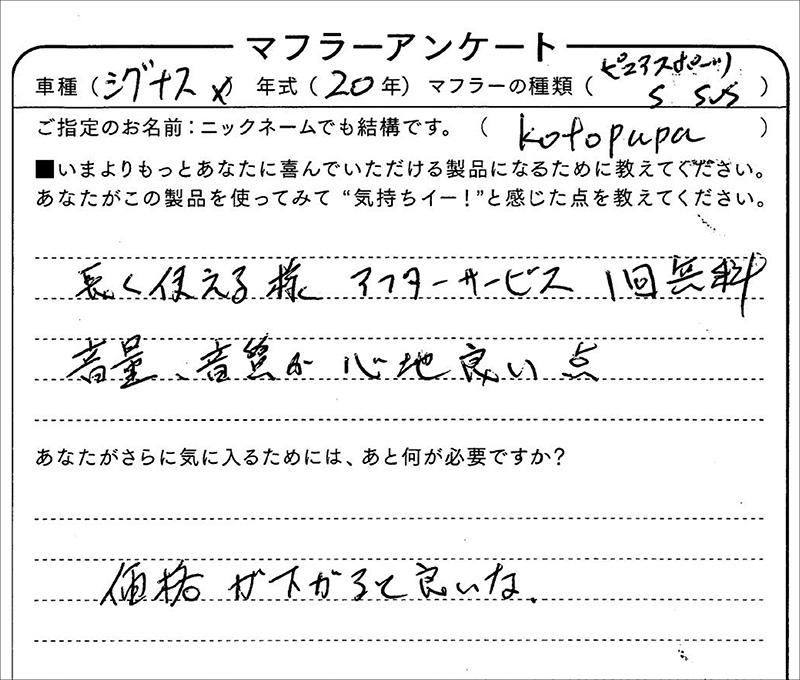 マフラーアンケート
車種（シグナスX） 年式（20年）マフラーの種類（ピュアスポーツ
S SUS）
ご指定のお名前：ニックネームでも結構です。（kotopapa）
■いまよりもっとあなたに喜んでいただける製品になるために教えてください。
あなたがこの製品を使ってみて“気持ちイー！”と感じた点を教えてください。
長く使える様 アフターサービス 1回無料
音量、音質が心地良い点
あなたがさらに気に入るためには、あと何が必要ですか？
価格が下がると良いな.